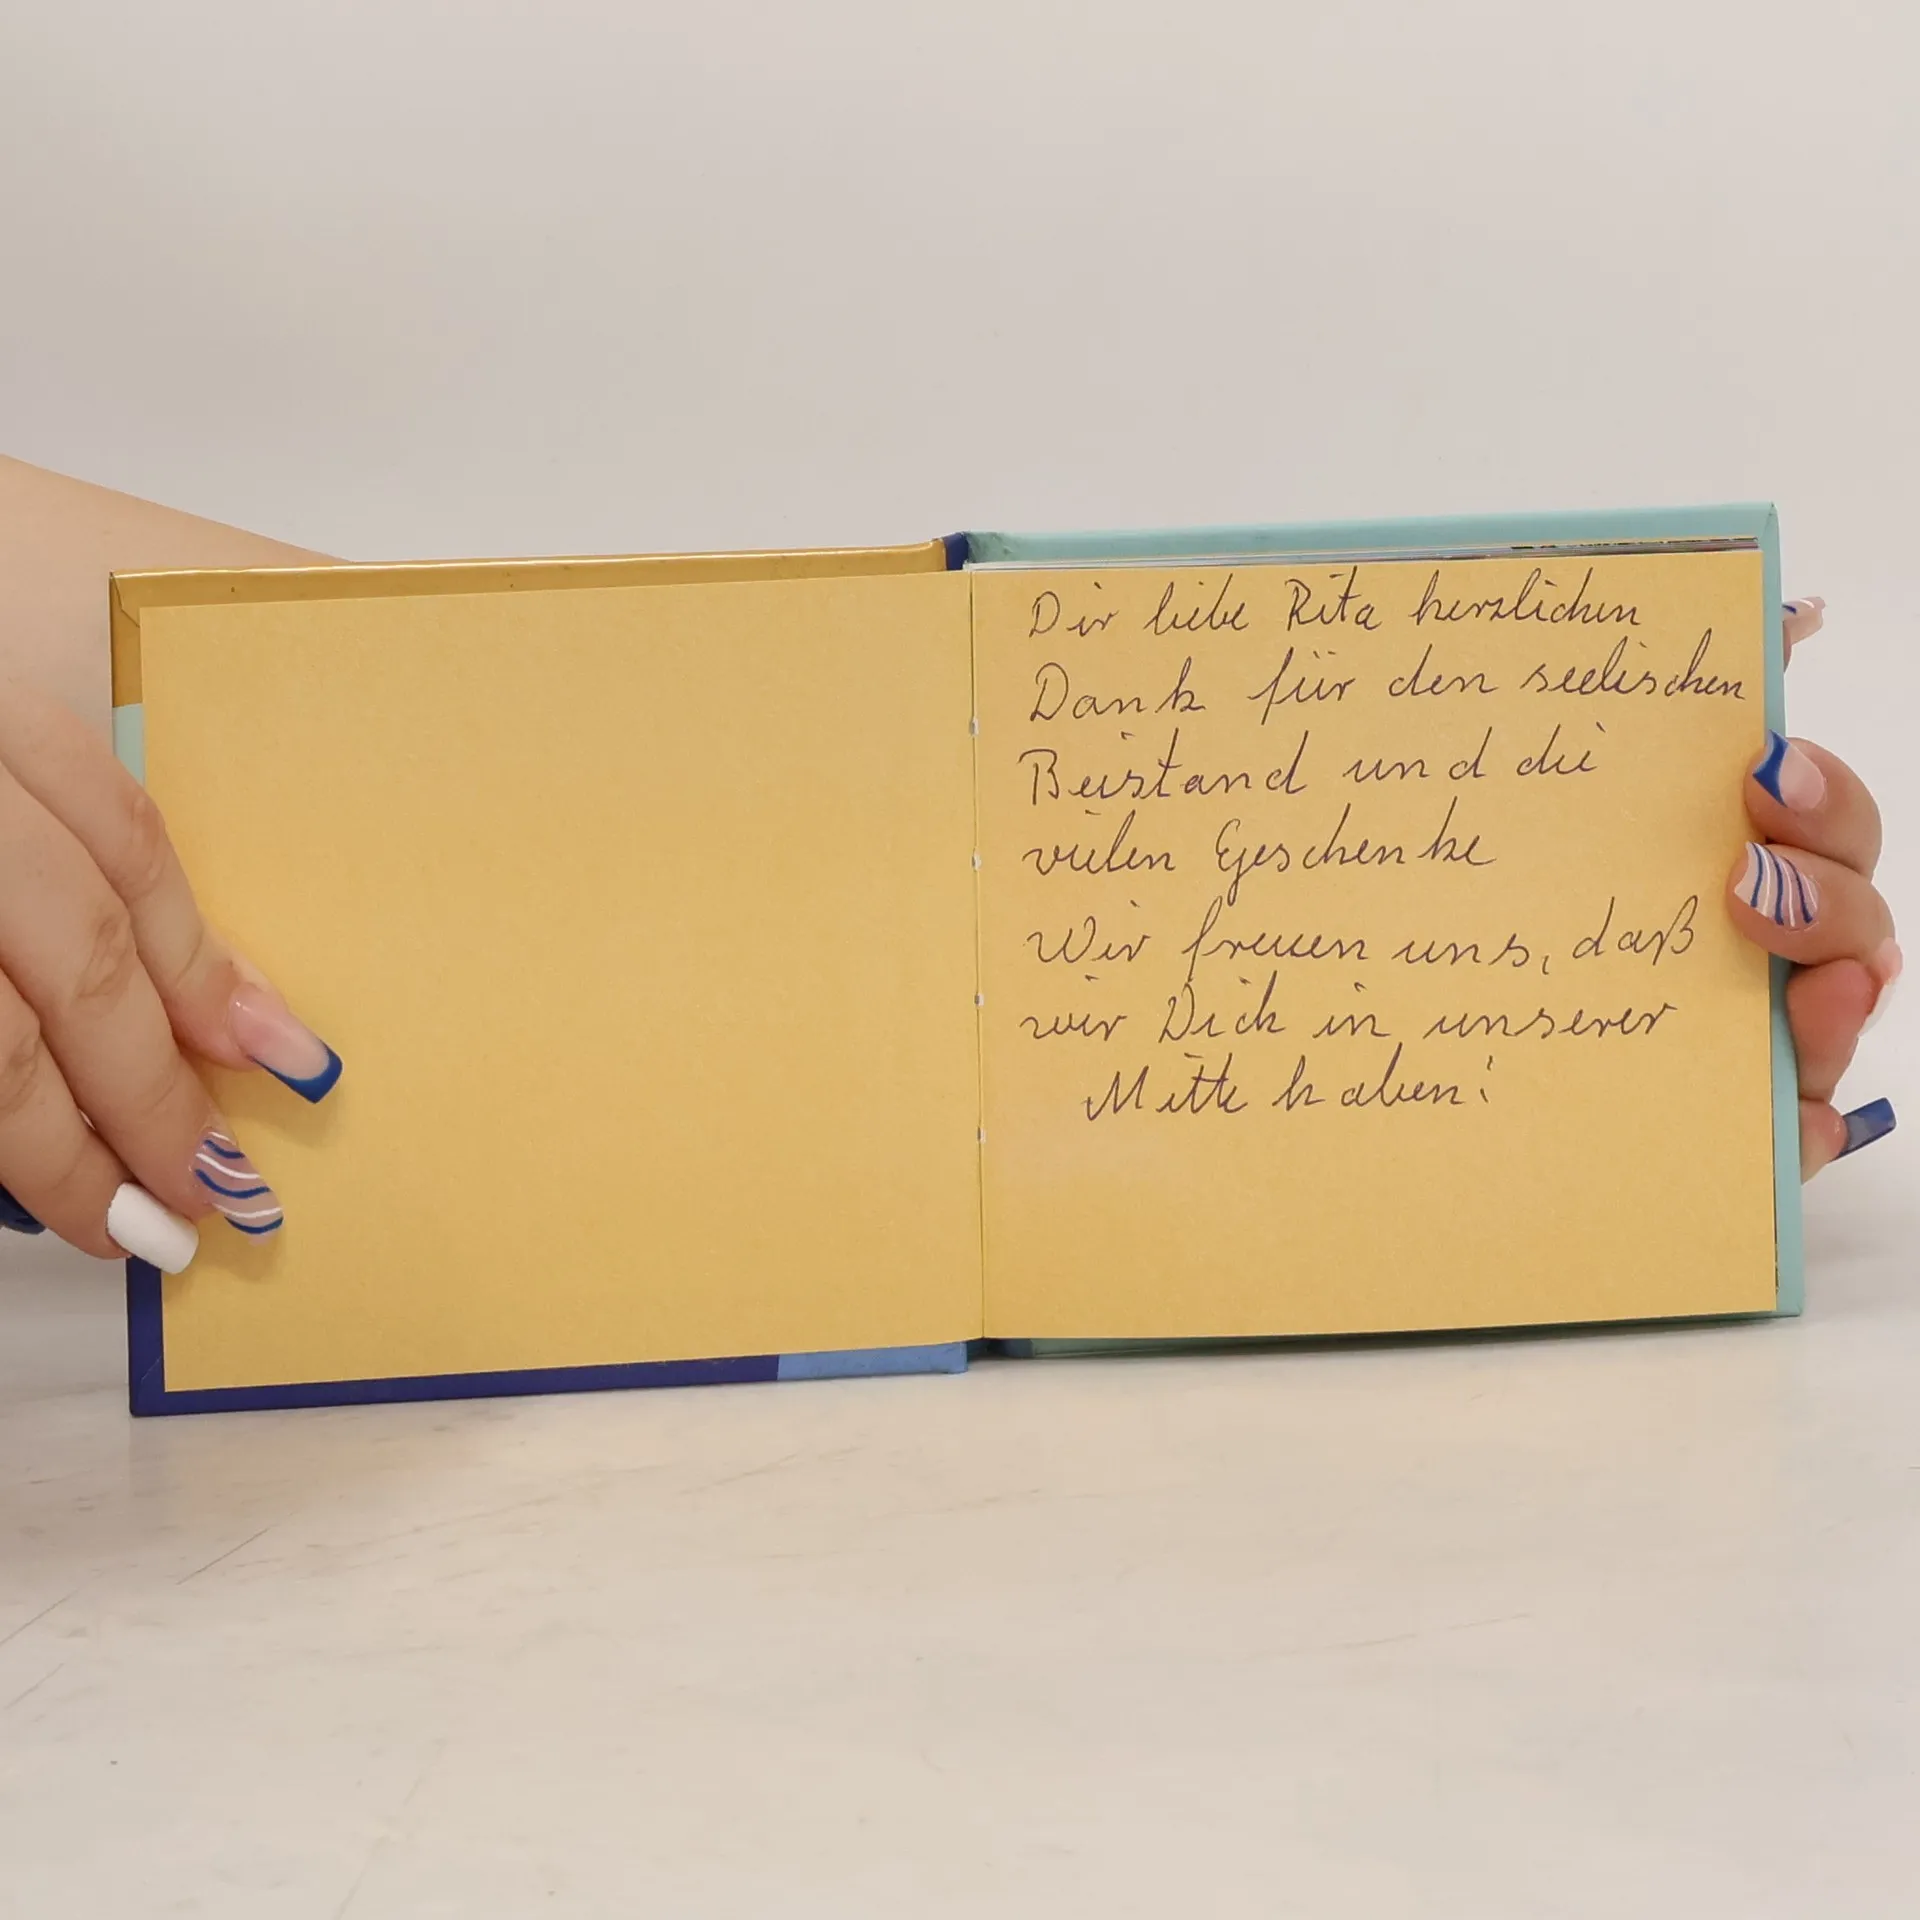 Dir liebe Rita herzlichen
Dank für den seelischen
Beistand und die
vielen Geschenke
Wir freuen uns, daß
wir Dich in unserer
Mitte haben!